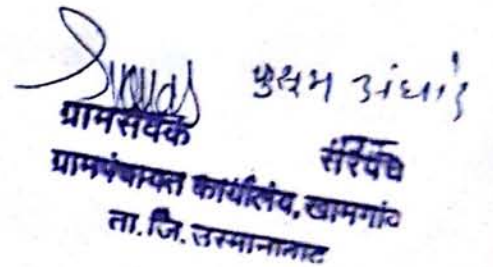 ग्रामसेवक सरपंच
ग्रामपंचायत कार्यालय, खामगांव
ता. जि. उस्मानाबाद